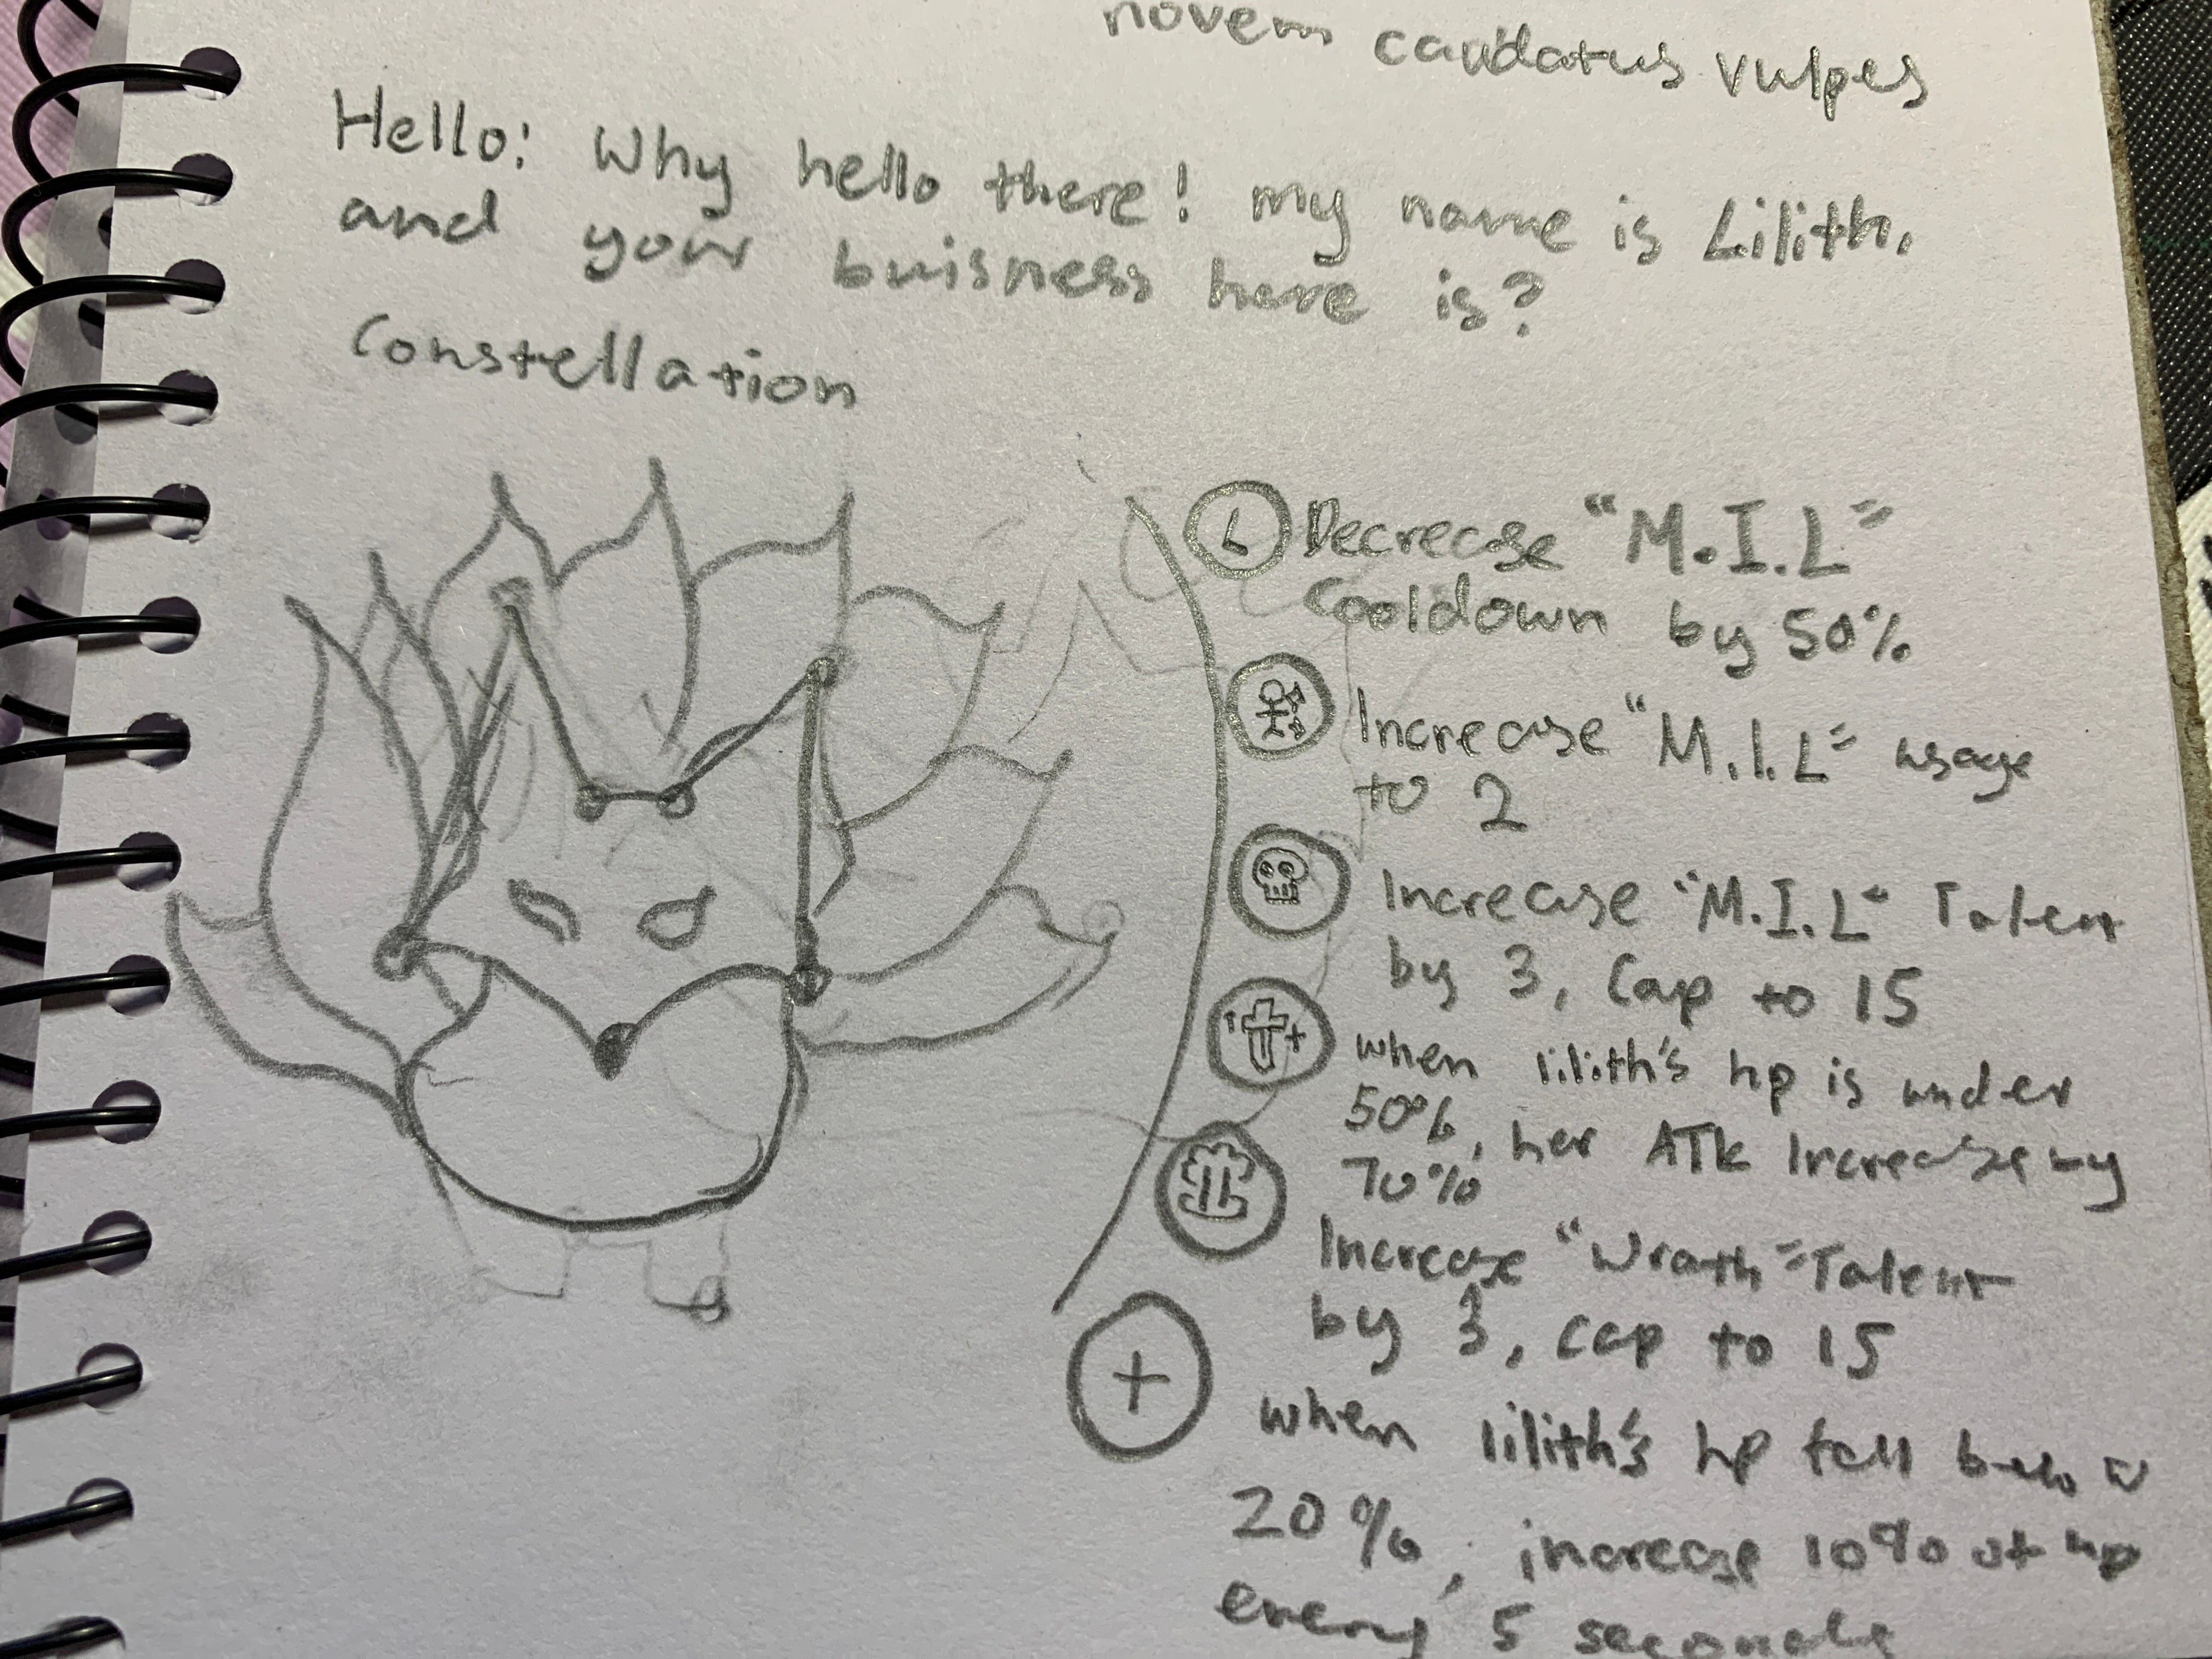 novem caudatus vulpes
Hello: Why hello there! my name is Lilith,
and your buisness here is?
Constellation
L Decrease "M.I.L"
Cooldown by 50%
Increase "M.I.L" usage
to 2
Increase "M.I.L" Talent
by 3, Cap to 15
when lilith's hp is under
50%, her ATK Increase by
70%
Increase "Wrath" Talent
by 3, cap to 15
+
when lilith's hp fall below
20%, increase 10% of hp
every 5 seconds